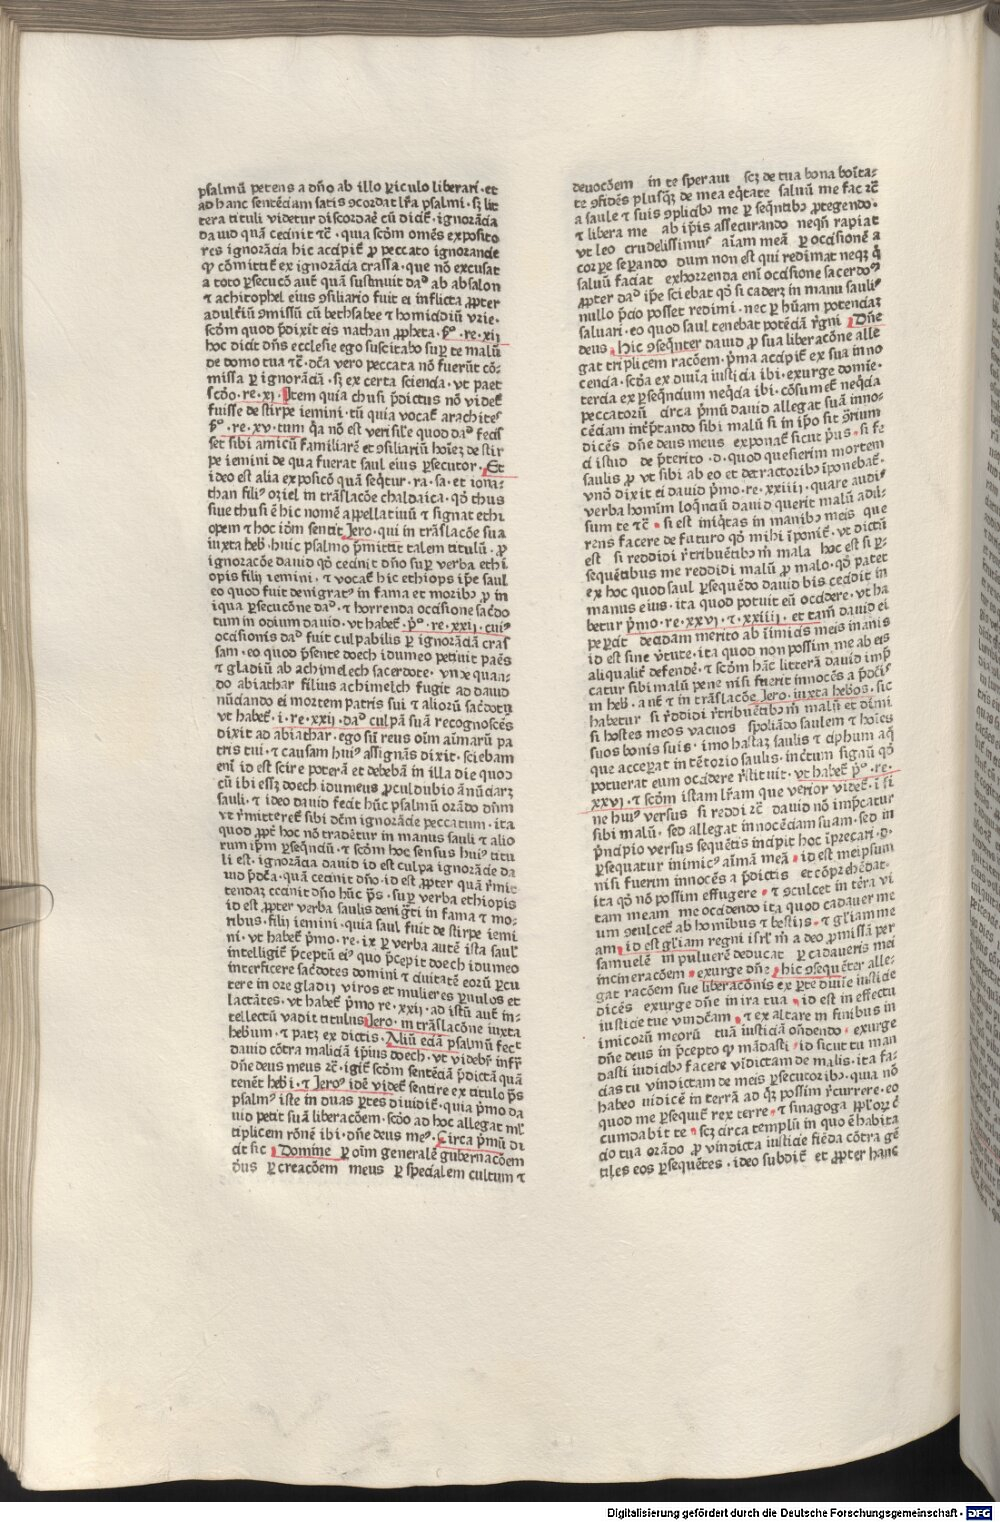 psalmū petens a dño ab illo ꝑiculo liberari · et
ad hanc sentēciam satis ꝯcordat lr̄a psalmi · sꝫ lit
tera tituli videtur discordaē cū diciť · ignorācia
dauid quā cecinit ⁊c̄ · quia scd̄m omēs exposito
res ignorācia hic accipiť ꝓ peccato ignorancie
qđ cōmittiť ex ignorācia crassa · que nō excusat
a toto ꝑsecucō autē quā sustinuit daᵈ ab absalon
⁊ achitophel eius ꝯsiliario fuit ei inflicta ꝓpter
adulťiū ꝯmissū cū bethsabee ⁊ homicidiū vrie ·
scd̄m quod p̄dixit eis nathan ꝓpheta · ẜᵒ · re · xij
hoc dicit dñs ecclesie ego suscitabo suꝑ te malū
de domo tua ⁊c̄ · dc̄a vero peccata nō fuerūt cō-
missa ꝑ ignorāciā · sꝫ ex certa sciencia · vt patet
scd̄o · re · xj · Item quia chusi p̄dictus nō videť
fuisse de stirpe iemini · tū quia vocať arachites
ẜᵒ · re · xv · tum qꝛ nō est verisile quod daᵈ fecis
set sibi amicū familiarē et ꝯsiliariū hoīeꝫ de stir
pe iemini de qua fuerat saul eius ꝑsecutor · Et
ideo est alia exposicō quā seq̄tur · ra · sa · et iona-
than filiꝰ oziel in trāslacōe chaldaica · qđ chus
siue thusi ē hic nomē appellatiuū ⁊ signat ethi
opem ⁊ hoc id̄m sentit Jero · qui in trāslacōe sua
iuxta heb̄ · huic psalmo p̄mittit talem titulū · ꝓ
ignoracōe dauid qđ cecinit dño suꝑ verba ethi
opis filij iemini · ⁊ vocať hic ethiops ip̄e saul
eo quod fuit denigratꝰ in fama et moribꝫ ꝓ in
iqua ꝑsecucōne daᵈ · ⁊ horrenda occisione sac̄do
tum in odium dauid · vt habeť · p̄ᵒ · re · xxij · cuiꝰ
occisionis daᵈ fuit culpabilis ꝑ ignorāciā cras
sam · eo quod p̄sente doech idumeo petiuit paēs
⁊ gladiū ab achimelech sacerdote · vnx̄ quan-
do abiathar filius achimelch fugit ad dauid
nūciando ei mortem patris sui ⁊ aliorū sac̄dotū
vt habeť · i · re · xxij · daᵈ culpā suā recognoscēs
dixit ad abiathar · ego sū reus oīm aīmarū pa
tris tui · ⁊ causam huiꝰ assignās dixit · sciebam
enī id est scire poterā et debebā in illa die quod
cū ibi esset doech idumeus ꝓculdubio ānūciarꝫ
sauli · ⁊ ideo dauid fecit hūc psalmū orādo dñm
vt r̄mittereť sibi dc̄m ignorācie peccatum · ita
quod ꝓpť hoc nō tradētur in manus sauli ⁊ alio
rum ip̄m ꝑseq̄nciū · ⁊ scd̄m hoc sensus huiꝰ titu
li est · ignorācia dauid id est culpa ignorācie da
uid p̄dc̄a · quā cecinit dño · id est ꝓpter quā r̄mit
tendaꝫ cecinit dño hūc ps̄ · suꝑ verba ethiopis
id est ꝓpter verba saulis denigr̄ti in fama ⁊ mo-
ribus · filij iemini · quia saul fuit de stirpe iemi
ni · vt habeť p̄mo · re · ix ꝑ verba autē ista saul'
intelligiť p̄ceptū eiꝰ quo p̄cepit doech idumeo
interficere sac̄dotes domini ⁊ ciuitatē eorū ꝑcu
tere in ore gladij viros et mulieres ꝑuulos et
lactātes · vt habeť p̄mo re · xxij · ad istū autē in-
tellectū vadit titulus Jero · in trāslacōne iuxta
heb̄eum · ⁊ patꝫ ex dictis · Aliū eciā psalmū fecit
dauid cōtra maliciā ip̄ius doech · vt videbť infr̄
dñe deus meus ⁊c̄ · igiť scd̄m sentēciā p̄dictā quā
tenēt heb̄i · ⁊ Jeroꝰ idē videť sentire ex titulo ps̄
psalmꝰ iste in duas ꝑtes diuidiť · quia p̄mo da
uid petit suā liberacōem · scd̄o ad hoc allegat ml'
tiplicem rōnē ibi · dñe deus meꝰ · Circa p̄mū di
cit sic · Domine ꝑ oīm generalē gubernacōem
ds̄us ꝑ creacōem meus ꝑ specialem cultum ⁊
deuocōem in te speraui scꝫ de tua bona boīta-
te ꝯfidēs plusqꝫ de mea eq̄tate saluū me fac ⁊c̄
a saule ⁊ suis ꝯplicibꝫ me ꝑ seq̄ntibꝫ ꝓtegendo ·
⁊ libera me ab ip̄is assecurando neqn̄ rapiat
vt leo crudelissimꝰ aīam meā ꝑ occisionē a
corꝑe seꝑando dum non est qui redimat neqꝫ q̄
saluū faciat exhorrenda enī occisione sacerdoꝰ
ꝓpter daᵈ ip̄e sciebat qđ si caderꝫ in manu sauliꝰ
nullo p̄cio posset redimi · nec ꝑ hūam potenciaꝫ
saluari · eo quod saul tenebat potēciā r̄gni · Dñe
deus · hic ꝯseq̄nter dauid ꝓ sua liberacōne alle
gat triplicem racōem · p̄ma accipiť ex sua inno
cencia · scd̄a ex diuīa iusticia ibi · exurge domīe ·
tercia ex ꝑseq̄ncium neq̄cia ibi · cōsumeť neq̄cia
peccatorū circa p̄mū dauid allegat suā inno-
cēciam incr̄ptando sibi malū si in ip̄o sit ꝯrium
dicēs dñe deus meus exponať sicut p̄us · si fe
ci istud de p̄terito · d · quod quesierim mortem
saulis ꝓ vt sibi ab eo et detractoribꝫ īponebať ·
vnō dixit ei dauid p̄mo · re · xxiiij · quare audiꝰ
verba homīm loq̄nciū dauid querit malū adů-
sum te ⁊c̄ · si est iniq̄tas in manibꝫ meis que
rens facere de futuro qđ mihi īponiť · vt dictū
est si reddidi r̄tribuētibꝫ m̄ mala hoc est si ꝑ-
sequētibus me reddidi malū ꝓ malo · qđ patet
ex hoc quod saul ꝑsequēdo dauid bis cecidit in
manus eius · ita quod potuit eū occidere · vt ha
betur p̄mo · re · xxvj · ⁊ · xxiiij · et tam̄ dauid ei
peꝑcit decidam merito ab īimicis meis inanis
id est sine v̄tute · ita quod non possim me ab eis
aliqualiť defendē · ⁊ scd̄m hāc litterā dauid imp̄
catur sibi malū pene nisi fuerit innocēs a p̄dc̄i
m heb̄ · a nē ⁊ in trāslacōe Jero · iuxta heb̄os · sic
habetur si r̄ddidi r̄tribuētibꝫ m̄ malū et dimi
si hostes meos vacuos spoliādo saulem ⁊ hoīes
suos bonis suis · imo hastaꝫ saulis ⁊ ciphum aq̄
que acceꝑat in tētorio saulis · inc̄tum signū qđ
potuerat eum occidere r̄stituit · vt habeť p̄ᵒ · re ·
xxvj · ⁊ scd̄m istam lr̄am que verior videť · i si
ne huiꝰ versus si reddi ⁊c̄ dauid nō imp̄catur
sibi malū · sed allegat innocēciam suam · sed in
p̄ncipio versus sequētis incipit hoc īprecari · d ·
ꝑsequatur inimicꝰ aīmā meā · id est meipsum
nisi fuerim innocēs a p̄dictis et cōprehēdat ·
ita qđ nō possim effugere · ⁊ ꝯculcet in tēra vi
tam meam me occidendo ita quod cadauer me
um ꝯculceť ab homībus ⁊ bestijs · ⁊ gl'iam me
am · id est gl'iam regni isrl' m̄ a deo ꝓmissā per
samuelē in puluerē deducat ꝑ cadaueris mei
incineracōem · exurge dñe · hic ꝯsequēter alle-
gat racōem sue liberacōnis ex ꝑte diuīe iusticie
dicēs exurge dñe in ira tua · id est in effectu
iusticie tue vindcām · ⁊ ex altare in finibus in
imicorū meorū tuā iusticiā on̄dendo · exurge
dñe deus in p̄cepto qđ mādasti · id sicut tu man
dasti iudicibꝫ facere vīdictam de malis · ita fa-
cias tu vindictam de meis ꝑsecutoribꝫ · quia nō
habeo iudicē in terrā ad qꝫ possim r̄currere · eo
quod me ꝑsequiť rex terre · ⁊ sinagoga ꝓl'oꝝ c̄
cumdabit te · scꝫ circa templū in quo ē habita
cio tua orādo ꝓ vindicta iusticie fiēda cōtra gē
tiles eos ꝑsequētes · ideo subdiť et ꝓpter hanc
Digitalisierung gefördert durch die Deutsche Forschungsgemeinschaft · DFG